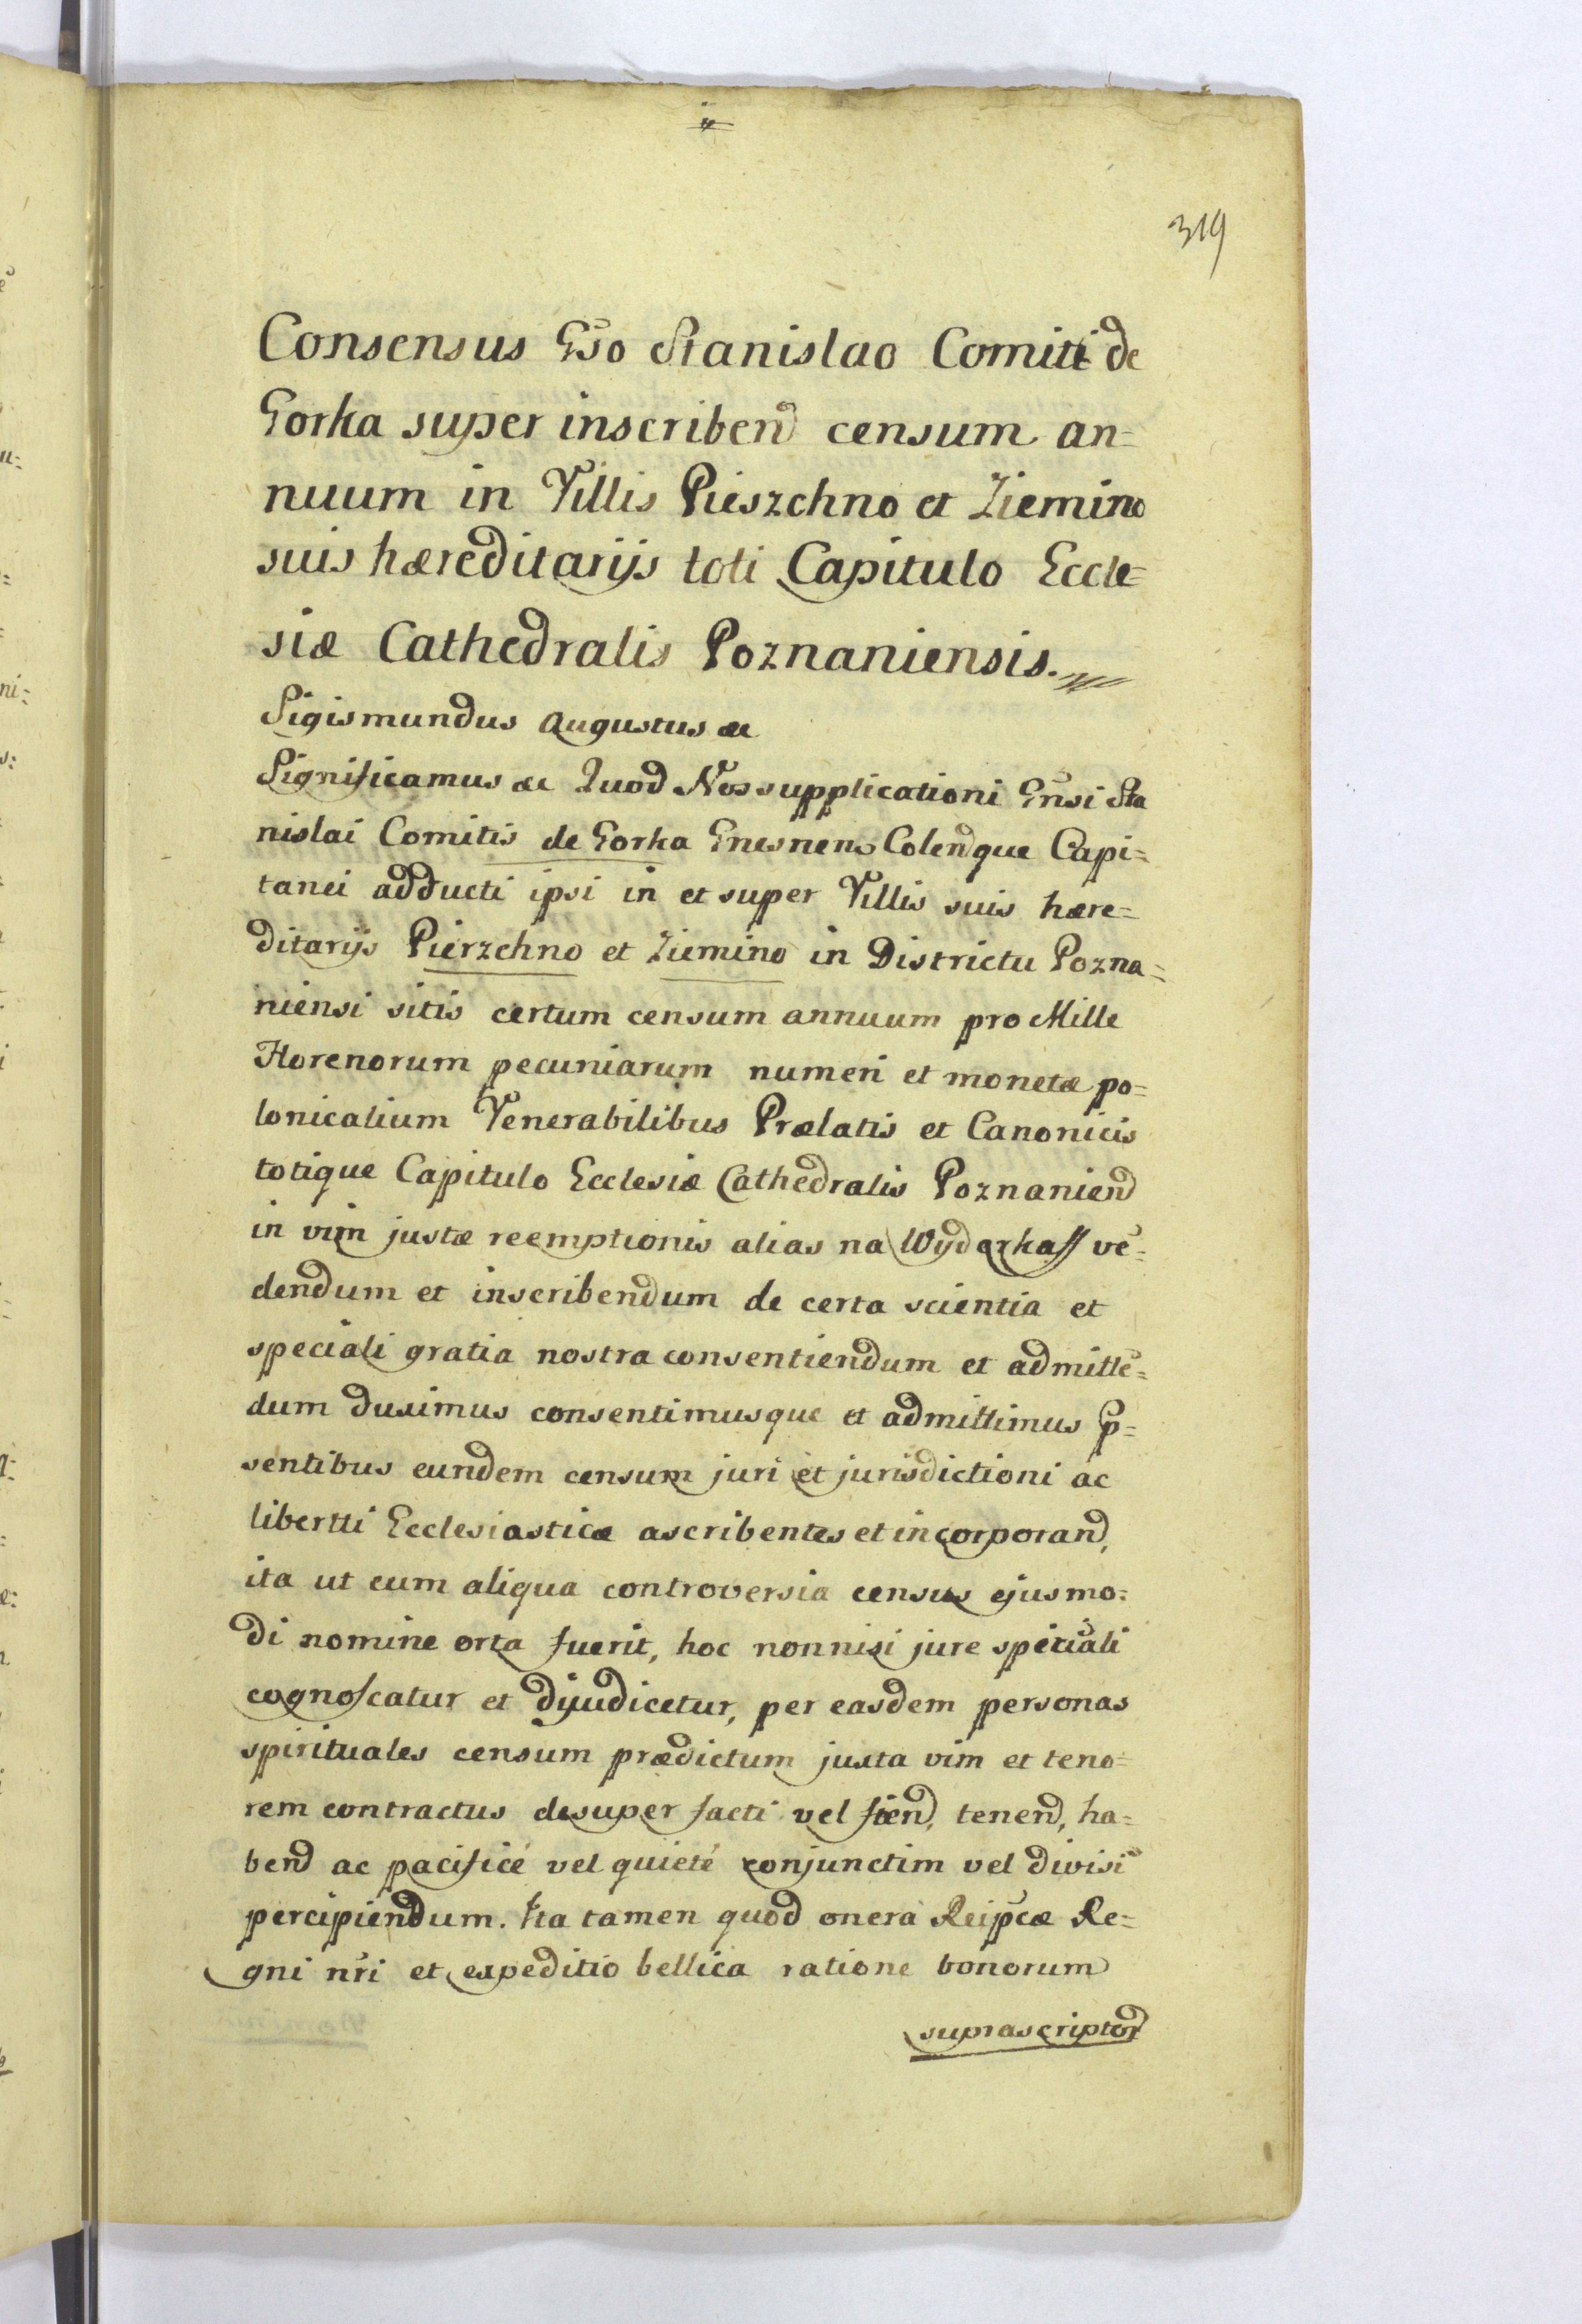 319
Consensus Gso Stanislao Comiti de
Gorka super inscribend censum an=
nuum in Villis Pieszchno et Ziemino
suis hæreditarijs toti Capitulo Eccle=
siæ Cathedralis Poznaniensis.
Sigismundus Augustus &c
Significamus &c Quod Nos supplicationi Gnsi Sta
nislai Comitis de Gorka Gnesnens Colendque Capi=
tanei adducti ipsi in et super Villis suis hære=
ditarijs Pierzchno et Ziemino in Districtu Pozna=
niensi sitis certum censum annuum pro Mille
Florenorum pecuniarum numeri et monetæ po=
lonicalium Venerabilibus Prælatis et Canonicis
totique Capitulo Ecclesiæ Cathedralis Poznaniend
in vim justæ reemptionis alias na Wyderkaff vē=
dendum et inscribendum de certa scientia et
speciali gratia nostra consentiendum et admittē=
dum duximus consentimusque et admittimus p=
sentibus eundem censum juri et jurisdictioni ac
libertti Ecclesiasticæ ascribentes et incorporand,
ita ut cum aliqua controversia census ejusmo=
di nomine orta fuerit, hoc nonnisi jure spirūali
cognoscatur et dijudicetur, per easdem personas
spirituales censum prædictum juxta vim et teno=
rem contractus desuper facti vel fiend, tenend, ha=
bend ac pacificé vel quieté conjunctim vel divisī
percipiendum. Ita tamen quod onera Reipcæ Re=
gni nri et expeditio bellica ratione bonorum
suprascriptor